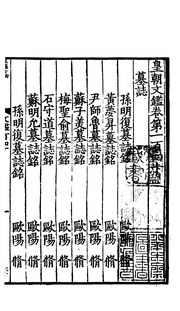 皇朝文鑑卷第一
墓誌
孫明復墓誌銘 歐陽脩
黃夢升墓誌銘 歐陽脩
尹師魯墓誌銘 歐陽脩
蘇子美墓誌銘 歐陽脩
梅聖俞墓誌銘 歐陽脩
石守道墓誌銘 歐陽脩
蘇明允墓誌銘 歐陽脩
孫明復墓誌銘 歐陽脩